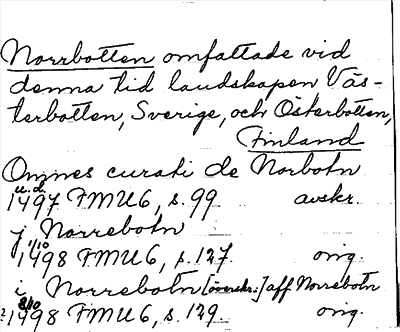 Norrbotten omfattade vid
denna tid landskapen Väs-
terbotten, Sverige, och Österbotten,
Finland
Omnes curati de Norbotn
u.d.
1497 FMU 6, s. 99. avskr.
j Norrebotn
1/10
1498 FMU 6, s. 127. orig.
i Norrebotn [överskr.:] aff Norrebotn
8/10
1498 FMU 6, s. 129. orig.